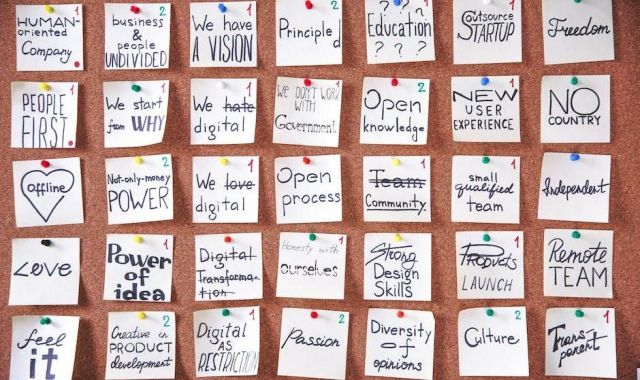 1
HUMAN-
oriented
Company
2
business
&
people
UNDIVIDED
1
We have
A VISION
2
Principle
d
1
? ? ?
Education
? ? ?
1
Outsource
STARTUP
Freedom
1
PEOPLE
FIRST.
2
We start
from WHY
1
We hate
digital
1
We DON'T WORK
WITH
Government
2
Open
knowledge
1
NEW
USER
EXPERIENCE
NO
COUNTRY
offline
2
Not-only-money
POWER
1
We love
digital
1
Open
process
1
Team
Community
1
small
qualified
team
Independent
Love
1
Power
of
idea
Digital
Transforma-
tion
1
Honesty with
ourselves
Strong
Design
Skills
1
PRODUCTS
LAUNCH
Remote
TEAM
feel
it
2
Creative in
PRODUCT
development
1
Digital
AS
RESTRICTION
2
Passion
Diversity
of
opinions
2
Culture
1
Trans-
parent